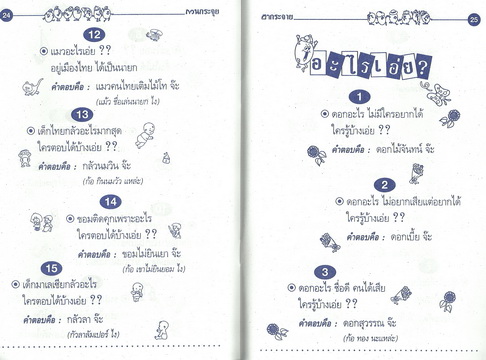 24
ชวนกระจุย
12
แมวอะไรเอ่ย ??
อยู่เมืองไทย ได้เป็นนายก
คำตอบคือ : แมวคนไทยเติมไม้โท จ๊ะ
(แม้ว ชื่อเล่นนายก ไง)
13
เด็กไทยกลัวอะไรมากสุด
ใครตอบได้บ้างเอ่ย ??
คำตอบคือ : กลัวนมวิน จ๊ะ
(ก้อ กินนมวัว แหล่ะ)
14
ขอมติดคุกเพราะอะไร
ใครตอบได้บ้างเอ่ย ??
คำตอบคือ : ขอมไม่ยินเยา จ๊ะ
(ก้อ เขาไม่ยินยอม ไง)
15
เด็กมาเลเซียกลัวอะไร
ใครตอบได้บ้างเอ่ย ??
คำตอบคือ : กลัวลา จ๊ะ
(กัวลาลัมเปอร์ ไง)
ฮากระจาย
25
อะไรเอ่ย?
1
ดอกอะไร ไม่มีใครอยากได้
ใครรู้บ้างเอ่ย ??
คำตอบคือ : ดอกไม้จันทน์ จ๊ะ
2
ดอกอะไร ไม่อยากเสียแต่อยากได้
ใครรู้บ้างเอ่ย ??
คำตอบคือ : ดอกเบี้ย จ๊ะ
3
ดอกอะไร ชื่อดี คนได้เสีย
ใครรู้บ้างเอ่ย ??
คำตอบคือ : ดอกสุวรรณ จ๊ะ
(ก้อ ทอง นะแหล่ะ)